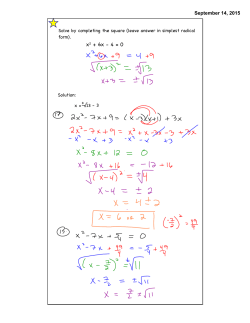 September 14, 2015
Solve by completing the square (leave answer in simplest radical
form).
x² + 6x - 4 = 0
x² + 6x + 9 = 4 + 9
√(x+3)² = ±√13
x+3 = ±√13
Solution:
x = ±√13 - 3
2x² - 7x + 9 = (x-3)(x+1) + 3x
2x² - 7x + 9 = x² + x - 3x - 3 + 3x
-x² - x + 3 -x² - x + 3
x² - 8x + 12 = 0
x² - 8x + 16 = -12 + 16
√(x-4)² = ±√4
x-4 = ± 2
x = 4 ± 2
x = 6 or 2
(-7/2)² = 49/4
x² - 7x + 5/4 = 0
x² - 7x + 49/4 = -5/4 + 49/4
√(x - 7/2)² = ±√11
x - 7/2 = ±√11
x = 7/2 ± √11